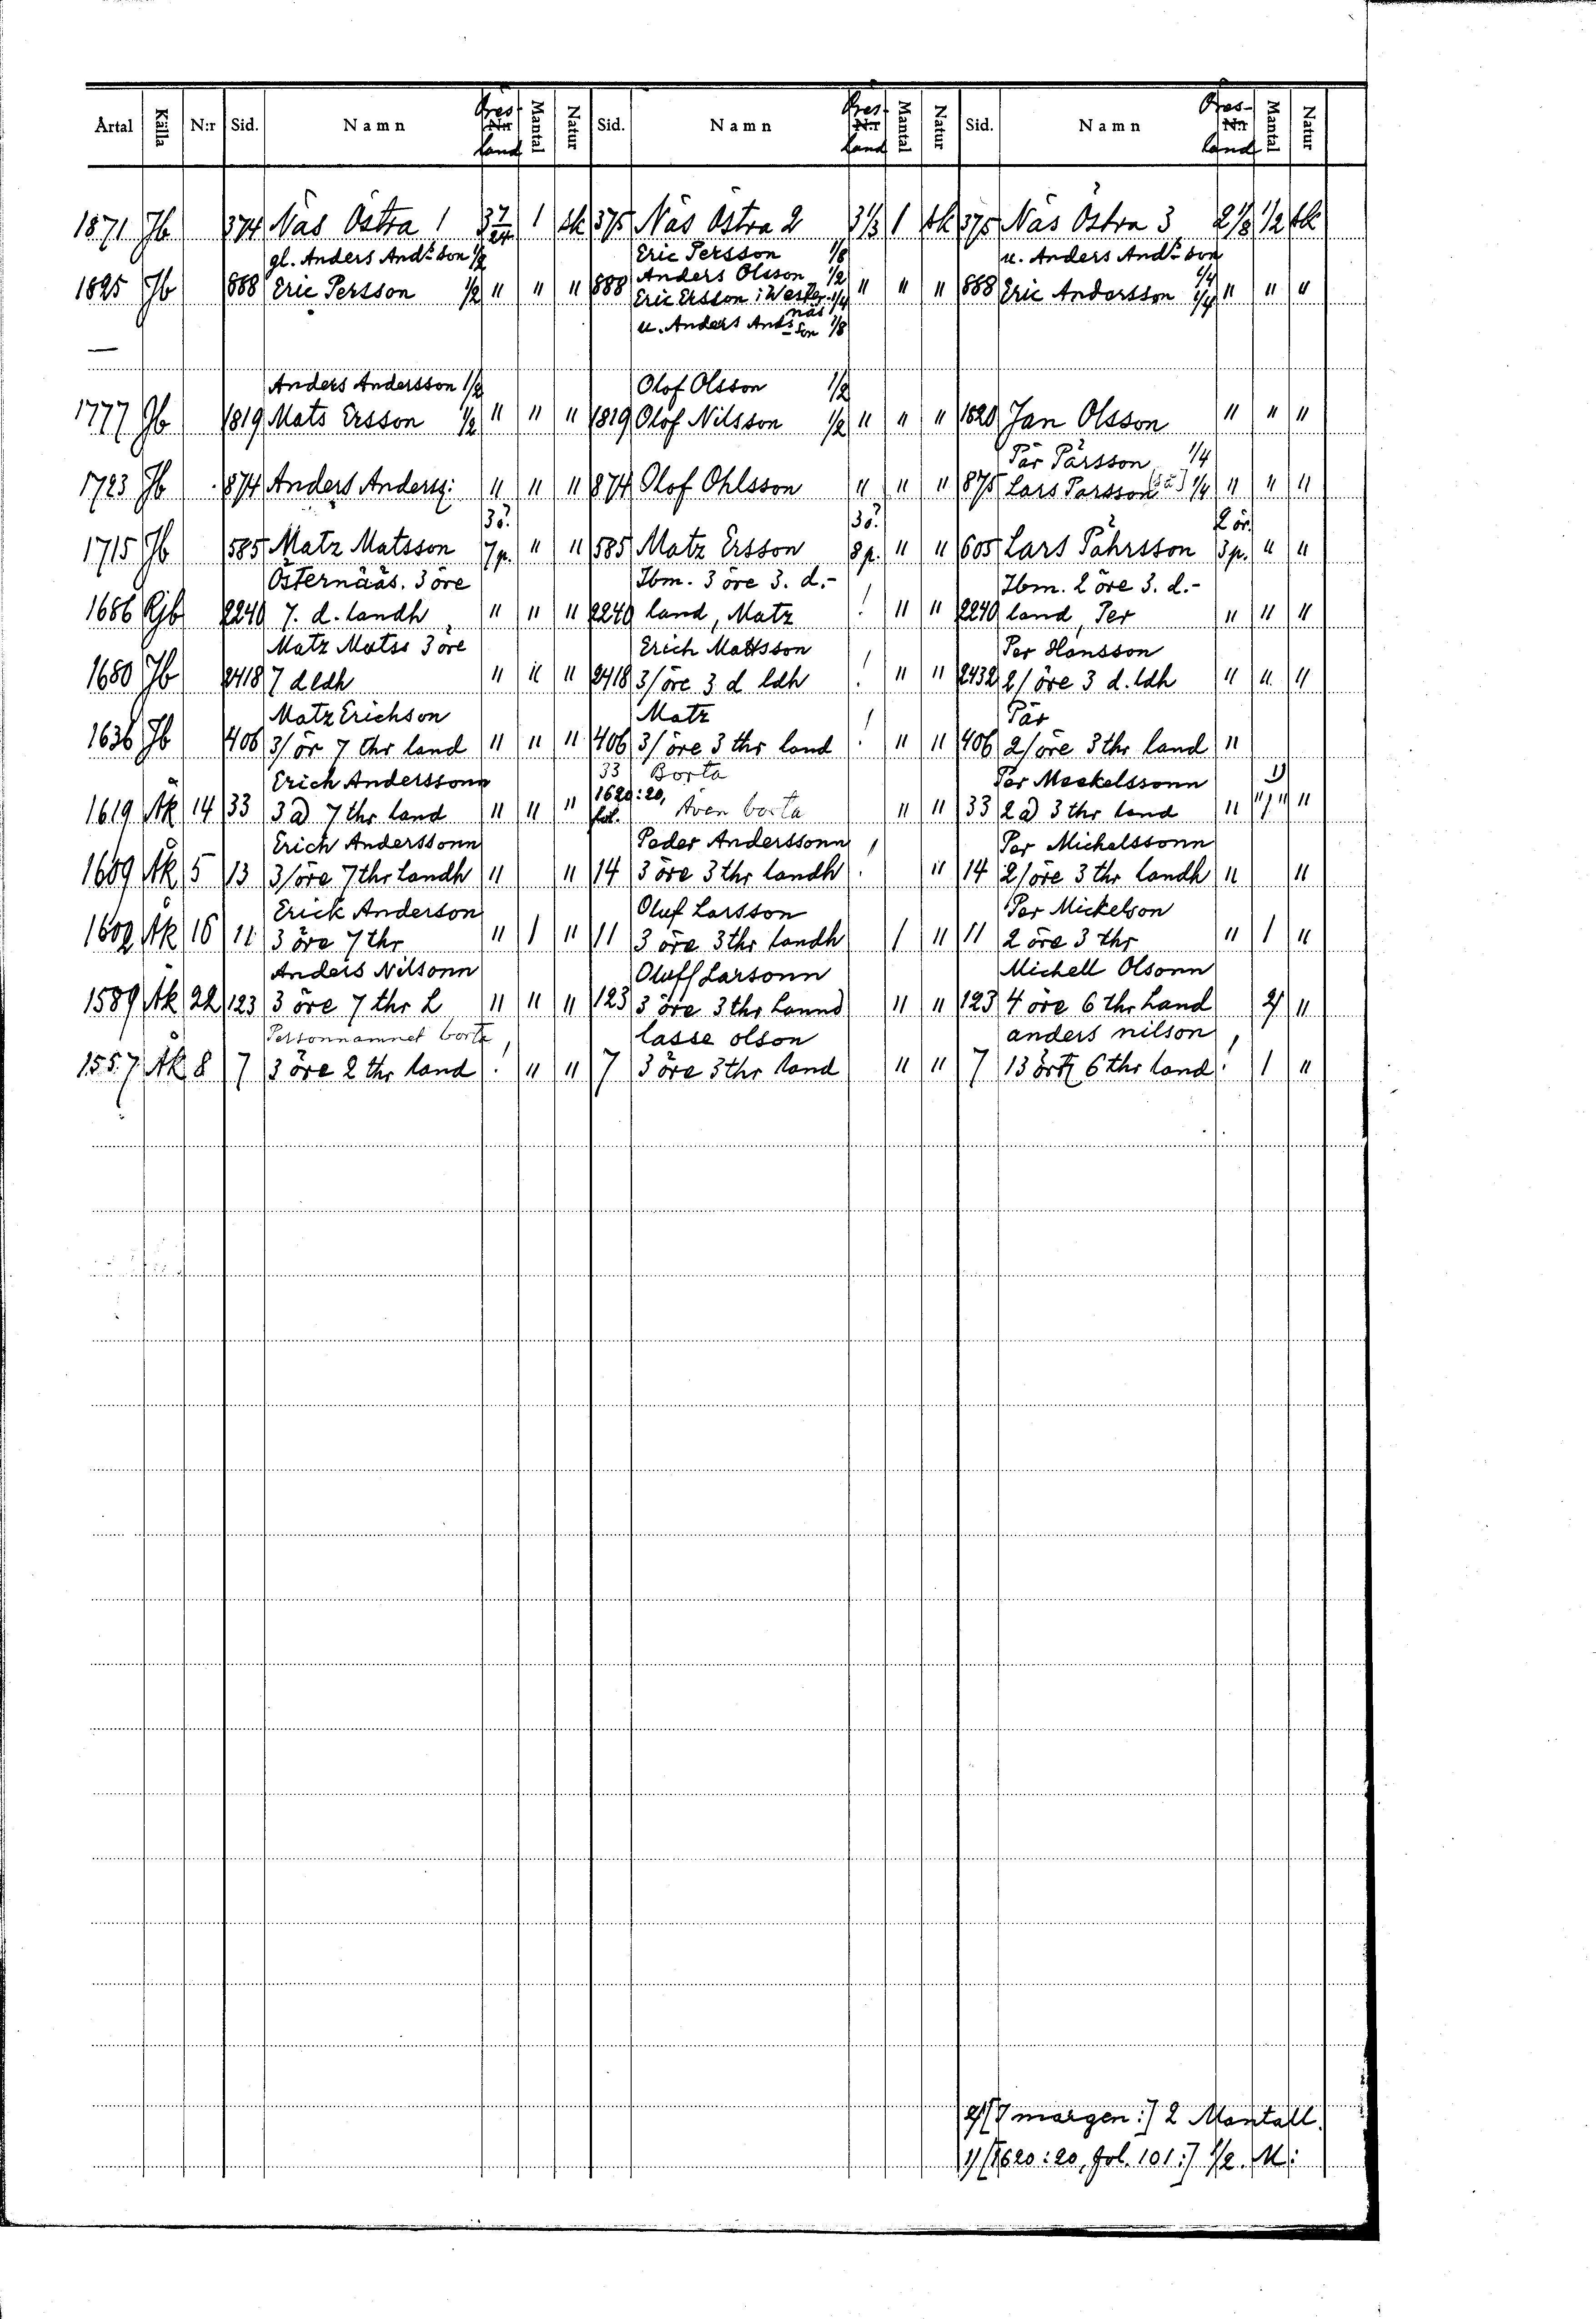 Årtal Källa N:r Sid. Namn Öres- N:r land Mantal Natur Sid. Namn Öres- N:r land Mantal Natur Sid. Namn Öres- N:r land Mantal Natur
1871 Jb 374 Näs Östra 1 3 7/24 1 sk 375 Näs Östra 2 3 1/3 1 sk 375 Näs Östra 3 2 1/3 1/2 sk
gl. Anders And:son 1/2 Eric Persson 1/8 u. Anders And:son 1/4
1825 Jb 888 Eric Persson 1/2 " " " 888 Anders Olsson 1/2 " " " 888 Eric Andersson 1/4 " " "
Eric Ersson i Wester näs 1/4
u. Anders Ands son 1/8
Anders Andersson 1/2 Olof Olsson 1/2
1777 Jb 1819 Mats Ersson 1/2 " " " 1819 Olof Nilsson 1/2 " " " 1820 Jan Olsson " " "
Pär Pärsson 1/4
1723 Jb 874 Anders Andersz: " " " 874 Olof Ohlsson " " " 875 Lars Parsson [så] 1/4 " " "
3ö. 3ö. 2 ör.
1715 Jb 585 Matz Matsson 7p. " " 585 Matz Ersson 8p. " " 605 Lars Påhrsson 3p. " "
Östernääs. 3 öre Ibm. 3 öre 3. d.- Ibm. 2 öre 3. d.-
1686 Rjb 2240 7. d. landh " " " 2240 land, Matz ! " " 2240 land, Per " " "
Matz Matss 3 öre Erich Mattsson Per Hansson
1680 Jb 2418 7 d ldh " " " 2418 3/öre 3 d ldh ! " " 2432 2/öre 3 d. ldh " " "
Matz Erichson Matz Pär
1636 Jb 406 3/ör 7 thr land " " " 406 3/öre 3 thr land ! " " 406 2/öre 3 thr land "
Erich Anderssonn 33 Borta Per Meekelssonn 1)
1619 Äk 14 33 3 a) 7 thr land " " " 1620:20, fol. Även borta " " 33 2 a) 3 thr land " "/" "
Erich Anderssonn Peder Anderssonn Per Michelssonn
1609 Åk 5 13 3/öre 7 thr Landh " " 14 3 öre 3 thr landh ! " 14 2/öre 3 thr landh " "
Erick Anderson Oluf Larsson Per Mickelson
1602 Åk 16 11 3 öre 7 thr " 1 " 11 3 öre 3 thr landh 1 " 11 2 öre 3 thr " 1 "
Anders Nilsonn Oluff Larsonn Michell Olsonn
1589 Åk 22 123 3 öre 7 thr L " " " 123 3 öre 3 thr Lannd " " 123 4 öre 6 thr Land 2) "
Personnamnet borta lasse olson anders nilson
1557 Åk 8 7 3 öre 2 thr land ! " " 7 3 öre 3 thr land " " 7 13 örtz 6 thr land ! 1 "
2) [I margen:] 2 Mantall.
1) [1620:20, fol. 101:] 1/2. M: